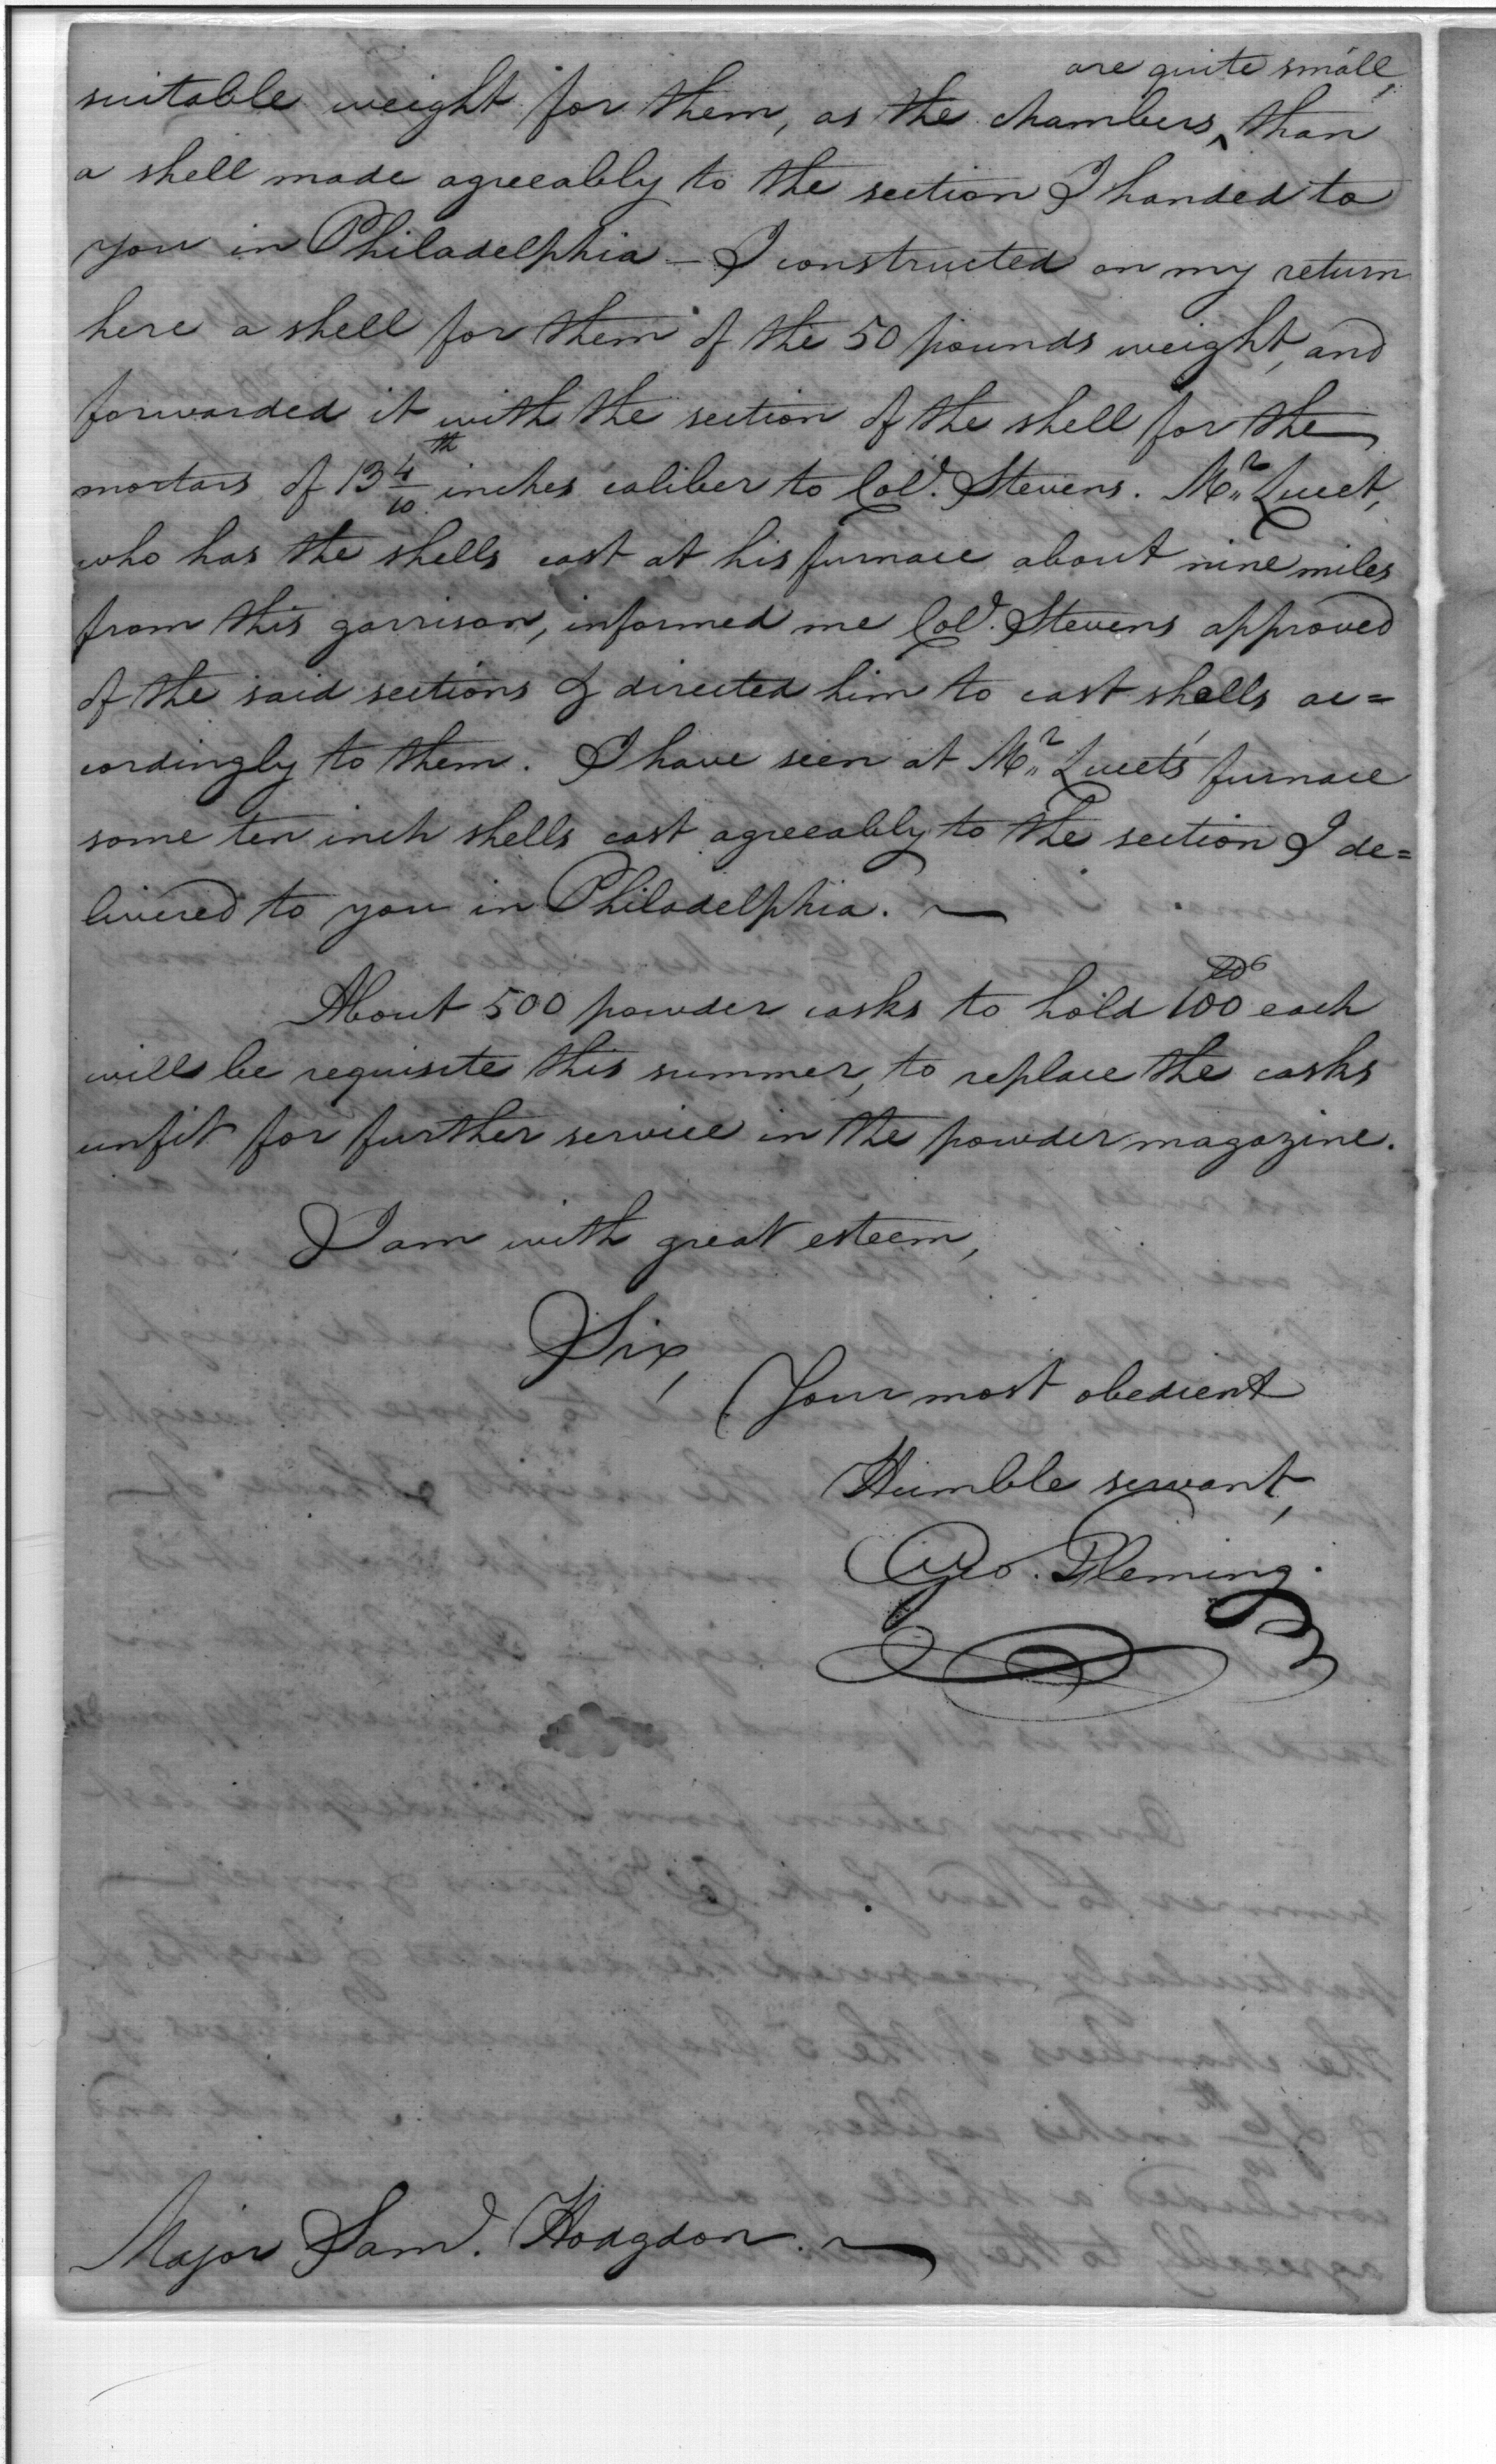 are quite small,
suitable weight for them, as the chambers ‸ than
a shell made agreeably to the section I handed to
you in Philadelphia — I constructed on my return
here a shell for them of the 50 pounds weight, and
forwarded it with the section of the shell for the
mortars of 13 4/10th inches caliber to Colo. Stevens. Mr. Lucet,
who has the shells cast at his furnace about nine miles
from this garrison, informed me Colo. Stevens approved
of the said sections & directed him to cast shells ac=
cordingly to them. I have seen at Mr. Lucet's furnace
some ten inch shells cast agreeably to the section I de=
livered to you in Philadelphia. —
About 500 powder casks to hold 100 lbs each
will be requisite this summer, to replace the casks
unfit for further service in the powder magazine.
I am with great esteem,
Sir,
Your most obedient
Humble servant,
Geo. Fleming.
Major Saml. Hodgdon. —